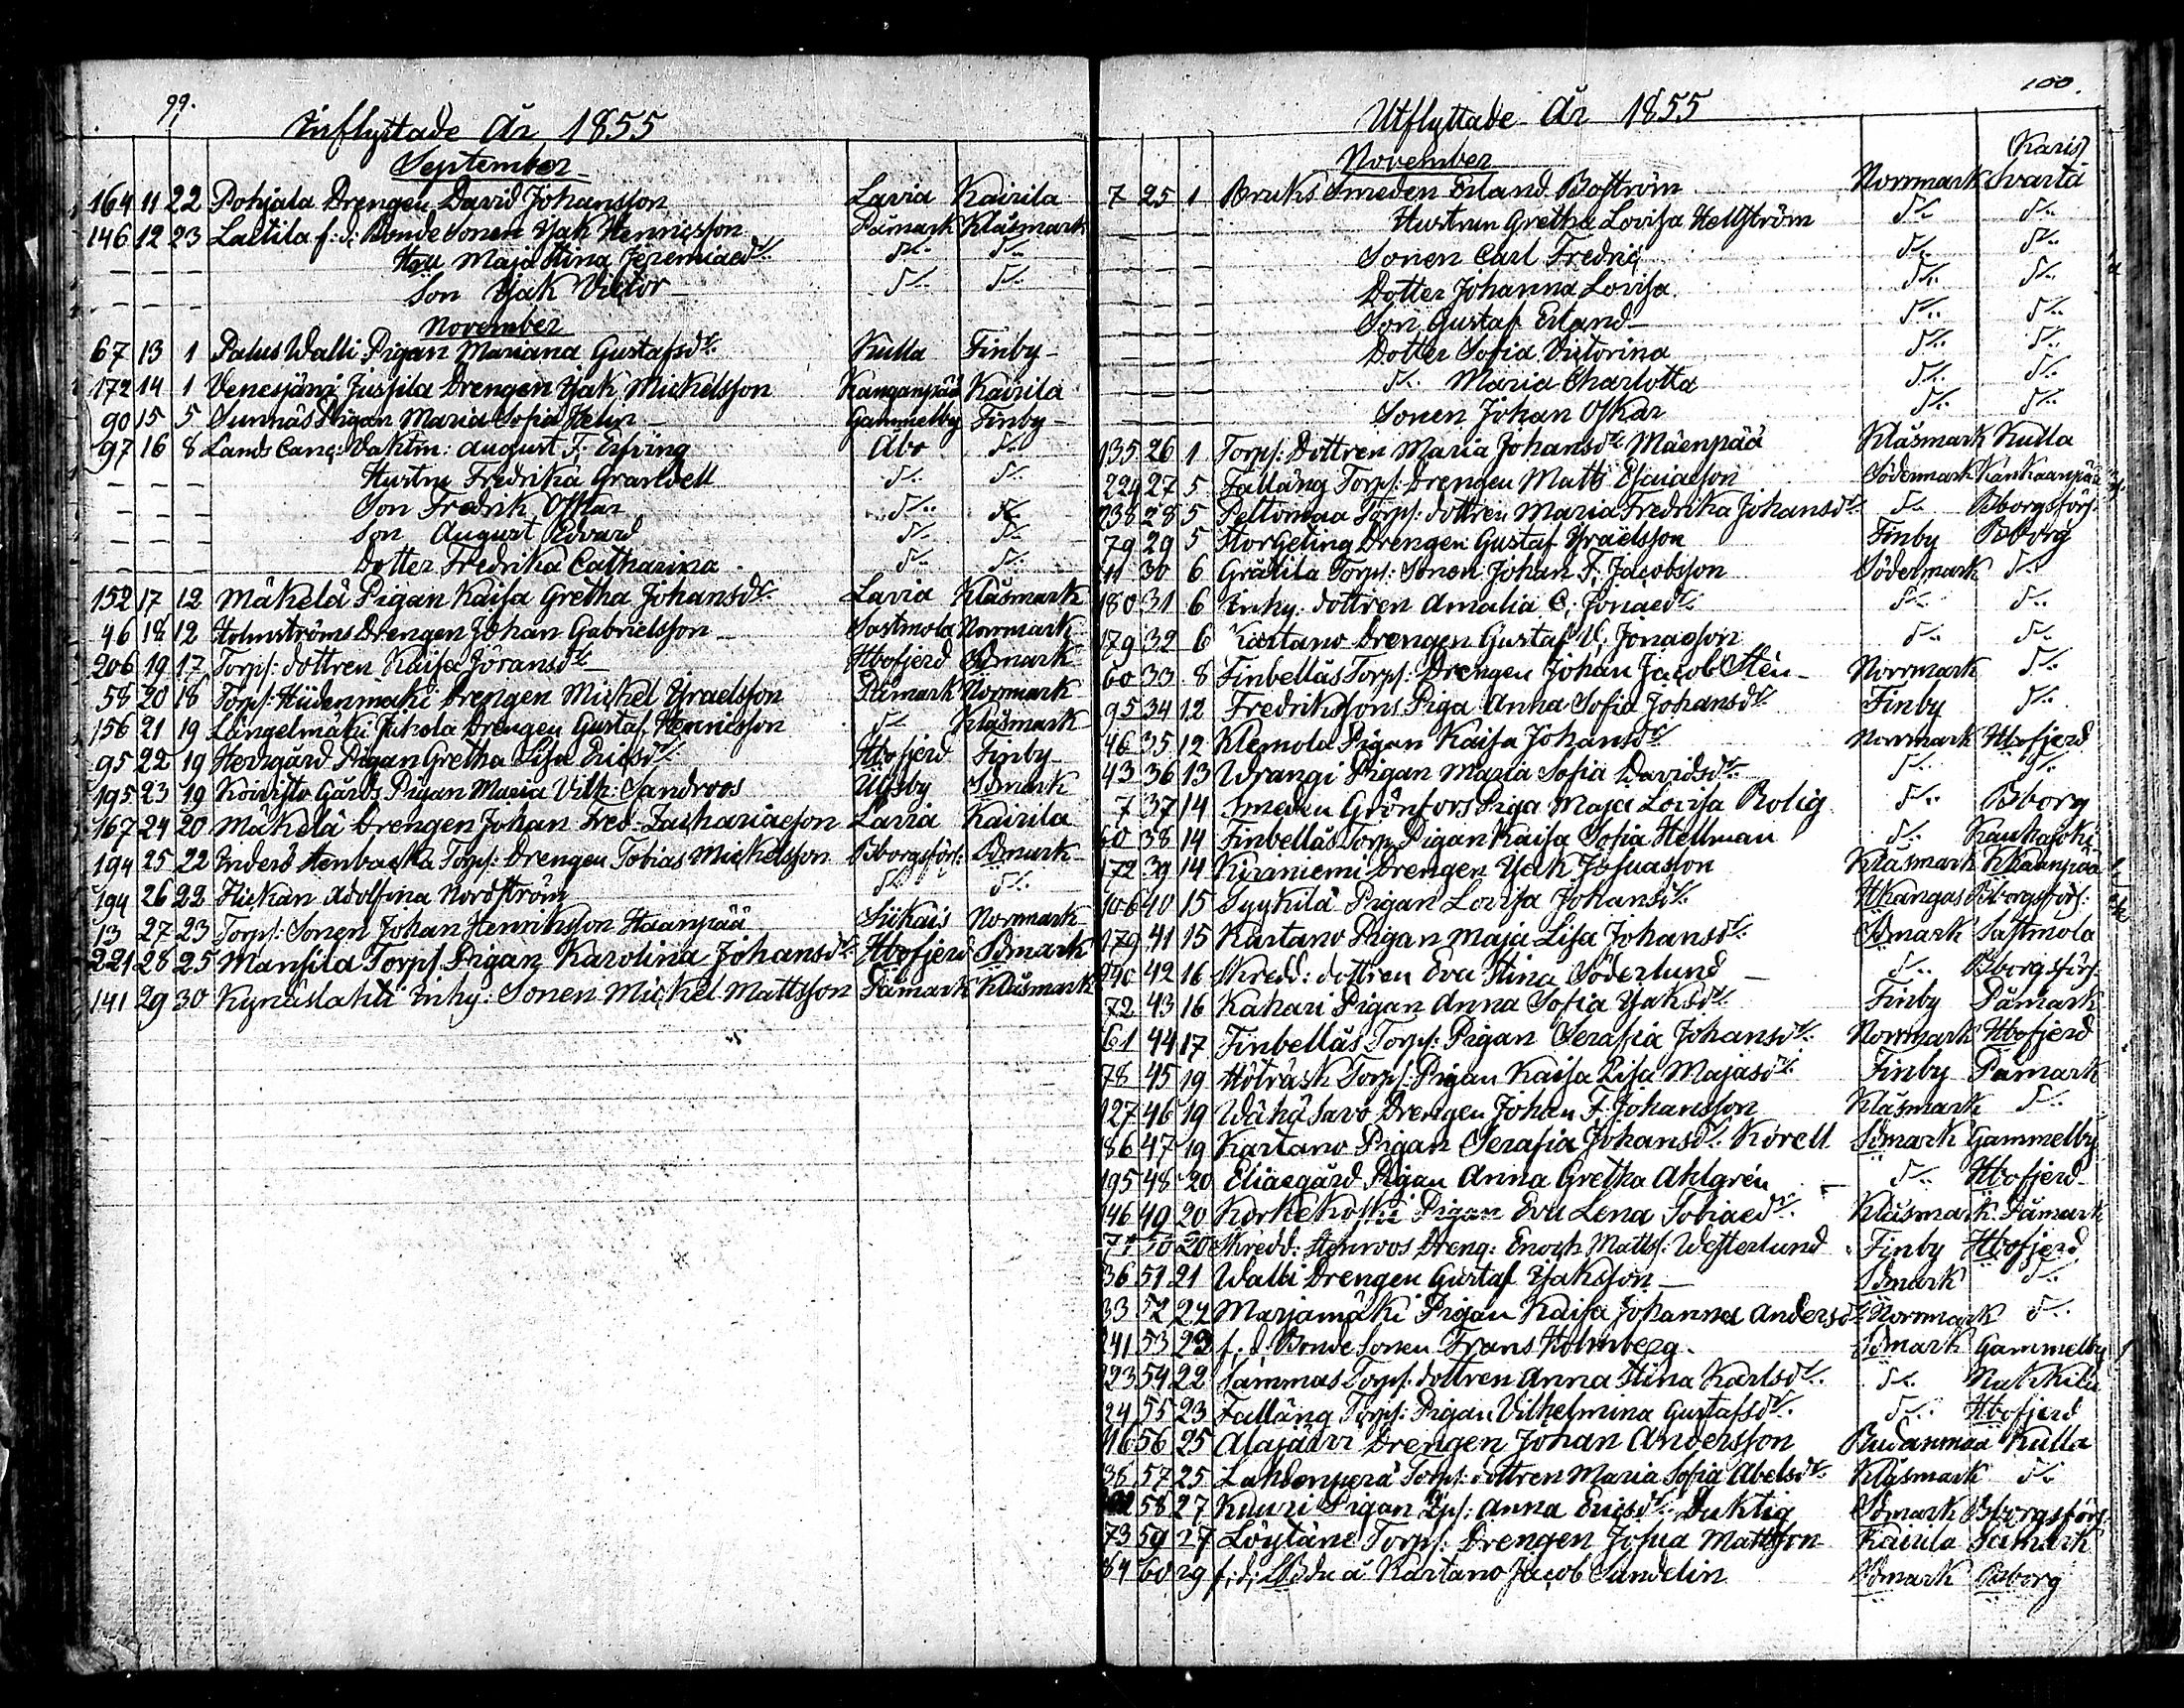 99.
Inflyttade År 1855
September
164 11 22 Pohjala Drengen David Johansson Lavia Kairila
146 12 23 Laitila f: d: Bonde Sonen Isak Henricsson Påmark Klåsmark
— — — Hru Maja Stina Jeremiaedr. dr.. dr..
— — — Son Isak Victor dr.. dr..
November
67 13 1 Palus Walli Pigan Mariana Gustafsdr. Kulla Finby
172 14 1 Venesjärvi Jussila Drengen Isak Mickelsson Kanganpää Kairila
90 15 5 Sunnäs Pigan Maria Sofia Gammelby Finby
97 16 8 Lands Canc: Vaktm: August F. Åbo dr..
— — — Hustru Fredrika Granldell dr.. dr..
— — — Son Fredrik Oskar dr.. dr..
— — — Son August Edvard dr.. dr..
— — — Dotter Fredrika Catharina dr.. dr..
152 17 12 Mäkelä Pigan Kaisa Gretha Johansdr. Lavia Klåsmark
46 18 12 Holmströms Drengen Johan Gabrielsson Sastmola Norrmark
206 19 17 Torps: dottren Kaisa Jöransdr. Hbofjerd Sdmark
58 20 18 Torps: Hiidenmäki Drengen Mickel Israelsson Påmark Norrmark
156 21 19 Längelmäki Juhola Drengen Gustaf Henricsson dr.. Klåsmark
95 22 19 Herrgård Pigan Gretha Lisa Ericsdr. Hbofjerd Finby
195 23 19 Koivisto Gårds Pigan Maria Vilh: Sandroos Ulfsby Sdmark
167 24 20 Mäkelä Drengen Johan Fred. Zachariaeson Lavia Kairila
194 25 22 Inders Stenbacka Torps: Drengen Tobias Mickelsson Bborgsförs: Sdmark
194 26 22 Flickan Adolfina Nordström dr.. dr..
13 27 23 Torps: Sonen Johan Henriksson Haanpää Siikais Norrmark
221 28 25 Mansila Torps Pigan Karolina Johansdr. Hbofjerd Sdmark
141 29 30 Kynäslahti Inhy: Sonen Mickel Mattsson Påmark Klåsmark
100.
Utflyttade År 1855
November (Karis)
7 25 1 Bruks Smeden Erland Boström Norrmark Svartå
— — — Hustrun Gretha Lovisa Hellström dr.. dr..
— — — Sonen Carl Fredric dr.. dr..
— — — Dotter Johanna Lovisa dr.. dr..
— — — Son Gustaf Erland dr.. dr..
— — — Dotter Sofia Victorina dr.. dr..
— — — dr.. Maria Charlotta dr.. dr..
— — — Sonen Johan Oskar dr.. dr..
135 26 1 Torps: Dottren Maria Johansdr. Mäenpää Klåsmark Kulla
224 27 5 Falläng Torps: Drengen Matts Esaiaeson Södermark Kankaanpää
238 28 5 Peltomaa Torps: dottren Maria Fredrika Johansdr. dr.. Bborgsförs.
79 29 5 Storgeling Drengen Gustaf Israelsson Finby Bborg
30 6 Grätila Torps: Sonen Johan F. Jacobsson Södermark dr..
180 31 6 Inhy: dottren Amalia C. Jonaedr. dr.. dr..
179 32 6 Kartano Drengen Gustaf V. Jonaeson dr.. dr..
60 33 8 Finbellås Torps: Drengen Johan Jacob Stén Norrmark dr..
95 34 12 Fredrikssons Piga Anna Sofia Johansdr. Finby dr..
46 35 12 Klemola Pigan Kaisa Johansdr. Norrmark Hbofjerd
43 36 13 Wrangi Pigan Maria Sofia Davidsdr. dr.. dr..
7 37 14 Smeden Grönfors Piga Maja Lovisa Rolig dr.. Bborg
60 38 14 Finbellås Torp Pigan Kaisa Sofia Hellman dr..
172 39 14 Kiviniemi Drengen Isak Josuasson Klåsmark
106 40 15 Syykilä Pigan Lovisa Johansdr. Hkangas Bborgsförs:
179 41 15 Kartano Pigan Maja Lisa Johansdr. Sdmark Sastmola
42 16 Skredd: dottren Eva Stina Söderlund dr.. Bborgsförs.
72 43 16 Kahari Pigan Anna Sofia Isaksdr. Finby Påmark
61 44 17 Finbellås Torps: Pigan Serafia Johansdr. Norrmark Hbofjerd
78 45 19 Höträsk Torps: Pigan Kaisa Lisa Majasdr. Finby Påmark
127 46 19 Wähä Savo Drengen Johan F. Johansson Klåsmark dr..
186 47 19 Kartano Pigan Serafia Johansdr. Korell Sdmark Gammelby
195 48 20 Eliaegård Pigan Anna Gretha Ahlgrén dr.. Hbofjerd
146 49 20 Korkekoski Pigan Eva Lena Tobiaedr. Klåsmark Påmark
50 20 Skredd: Stenroos Dreng: Enoch Matts: Westerlund Finby Hbofjerd
36 51 21 Walli Drengen Gustaf Isaksson Sdmark dr..
33 52 22 Marjamäki Pigan Kaisa Johanna Andersdr. Norrmark dr..
241 53 22 f. d. Bonde Sonen Frans Holmberg Sdmark Gammelby
223 54 22 Sammas Torps: dottren Anna Stina Karlsdr. dr.. Nakkila
224 55 23 Falläng Torps: Pigan Vilhelmina Gustafsdr. dr.. Hbofjerd
116 56 25 Alajärvi Drengen Johan Andersson Rudanmaa Kulla
136 57 25 Lahdenperä Torps: dottren Maria Sofia Abelsdr. Klåsmark dr..
58 27 Kuuri Pigan Anna Ericsdr. Duktig Sdmark Bborgsförs.
73 59 27 Löytäne Torps: Drengen Josua Mattsson Kairila Påmark
84 60 29 f: d: å Kartano Jacob Sundelin Sdmark Bborg